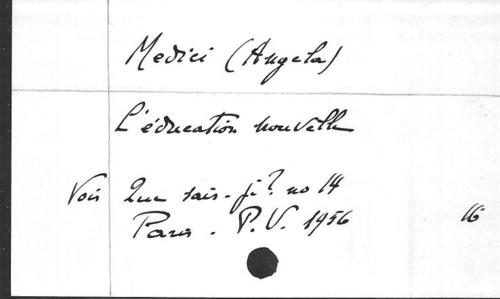 Medici (Angela)
L'éducation nouvelle
Voir Que sais-je? no 14
Paris. P.V. 1956 16